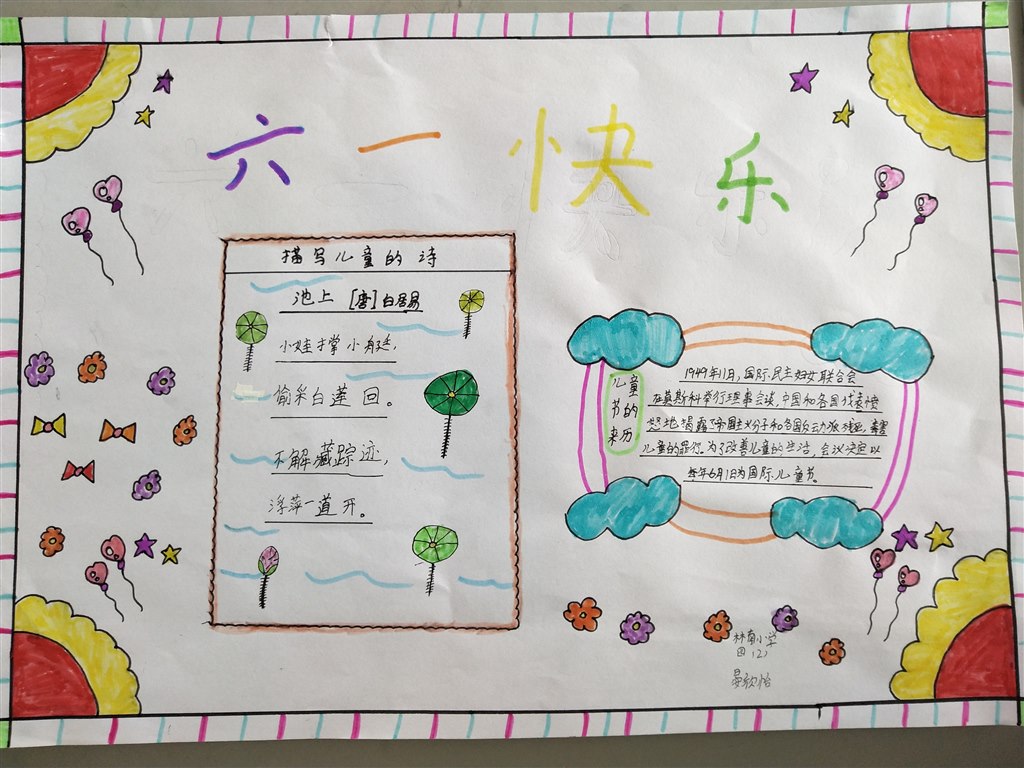 六一快乐
描写儿童的诗
池上 [唐]白居易
小娃撑小艇,
偷采白莲回。
不解藏踪迹,
浮萍一道开。
儿童节的来历
1949年11月,国际民主妇女联合会
在莫斯科举行理事会议,中国和各国代表愤
怒地揭露了帝国主义分子和各国反动派残杀,毒害
儿童的罪行。为了改善儿童的生活,会议决定以
每年6月1日为国际儿童节。
林南小学
四(2)
晏欣怡